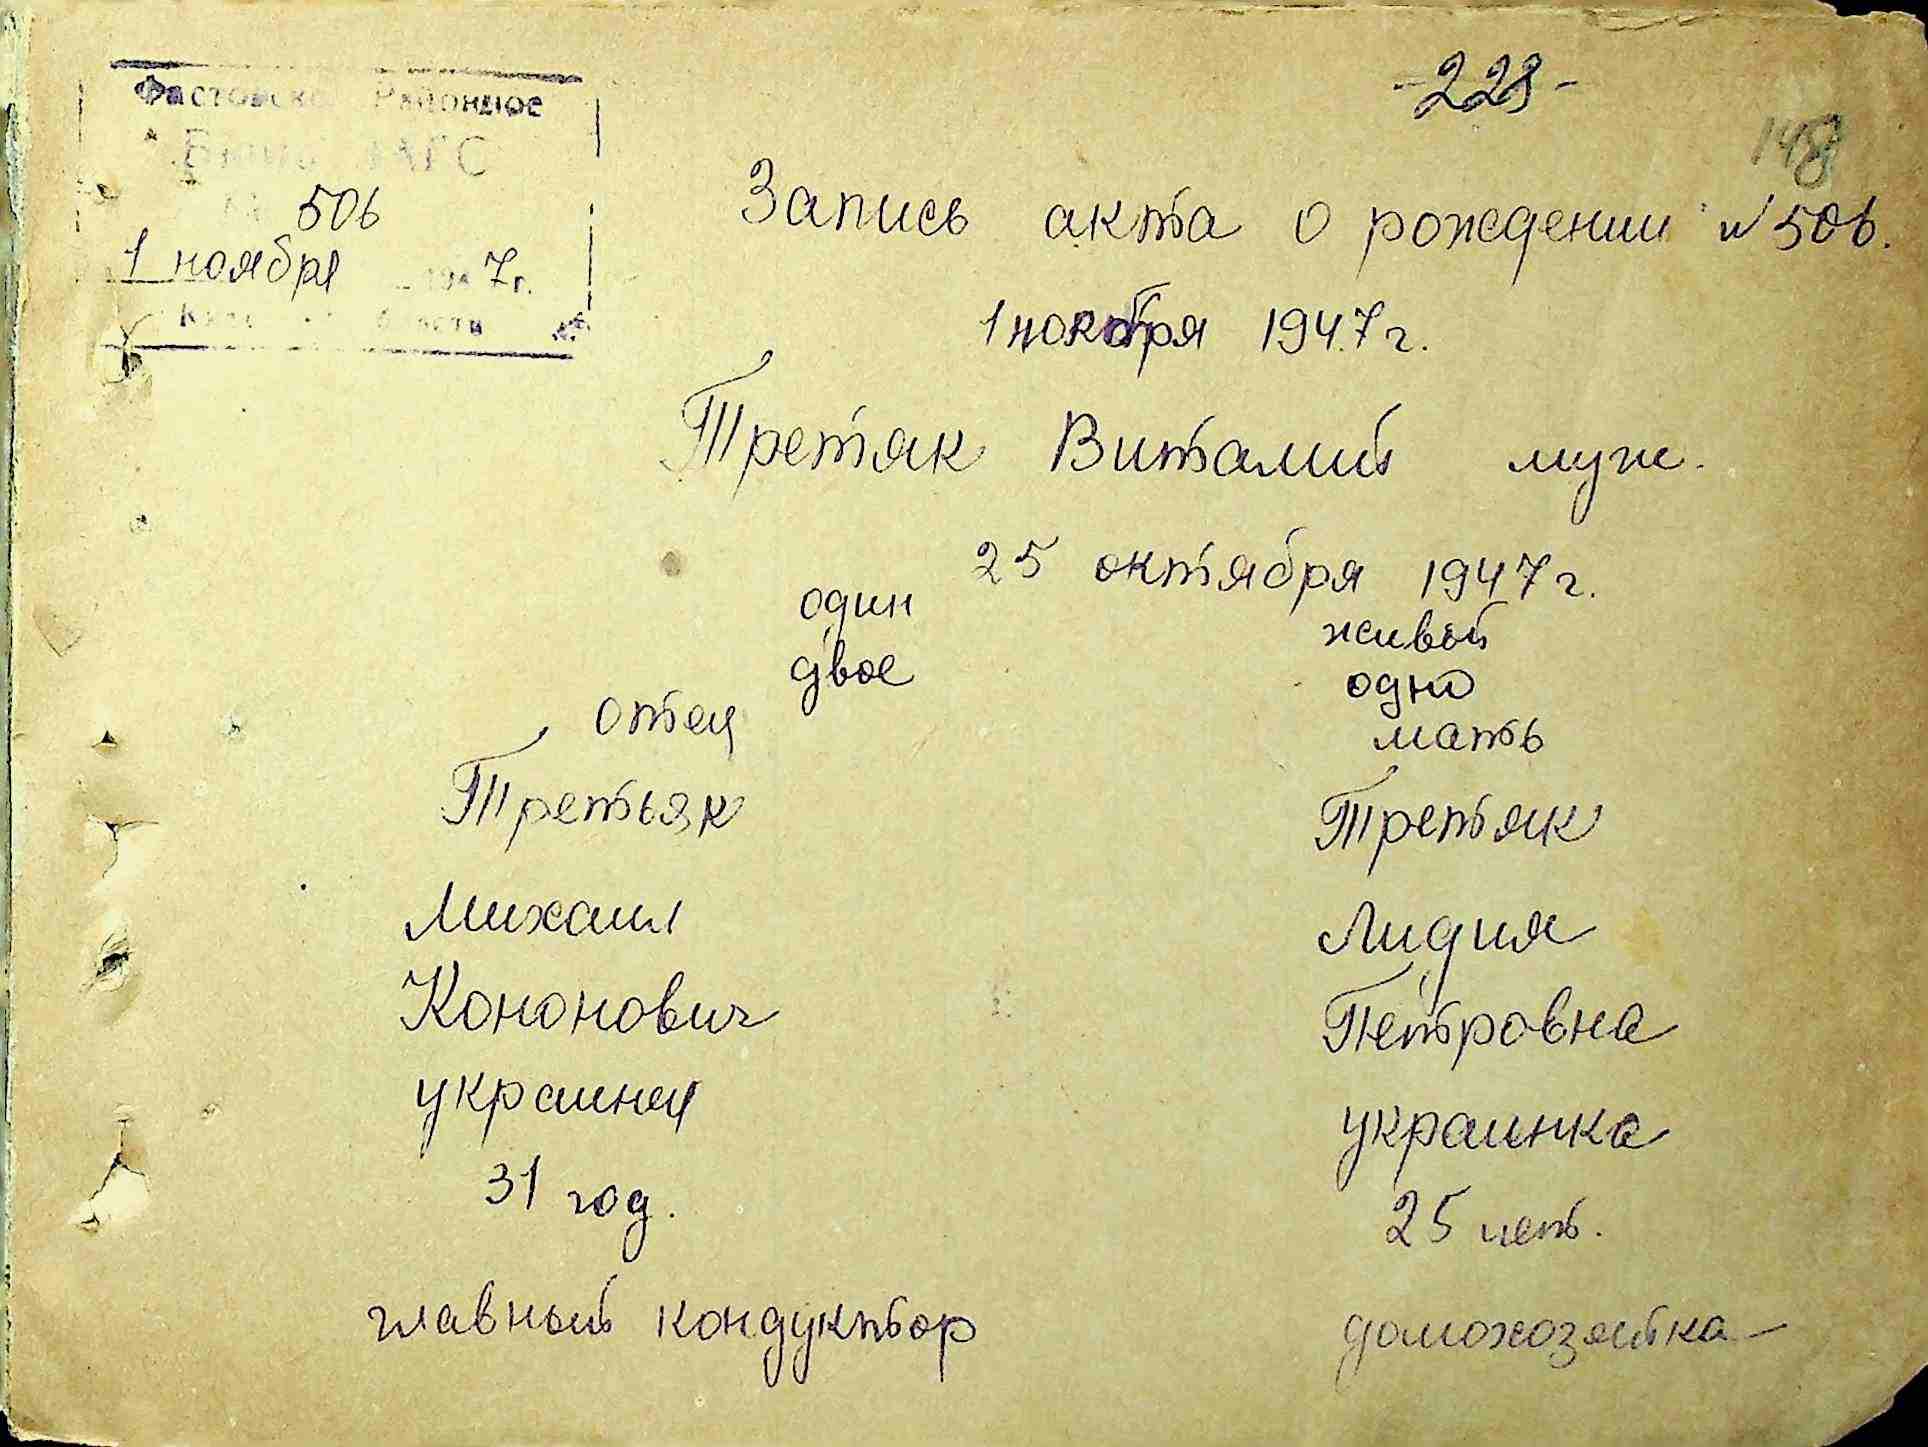 -228-
148
Фастовское Районное
Бюро ЗАГС
№ 506
1 ноября 1947 г.
Киевской области
Запись акта о рождении № 506.
1 ноября 1947 г.
Третяк Виталий муж.
25 октября 1947 г.
один живой
двое одно
отец мать
Третьяк Третяк
Михаил Лидия
Кононович Петровна
украинец украинка
31 год. 25 лет.
главный кондуктор домохозяйка